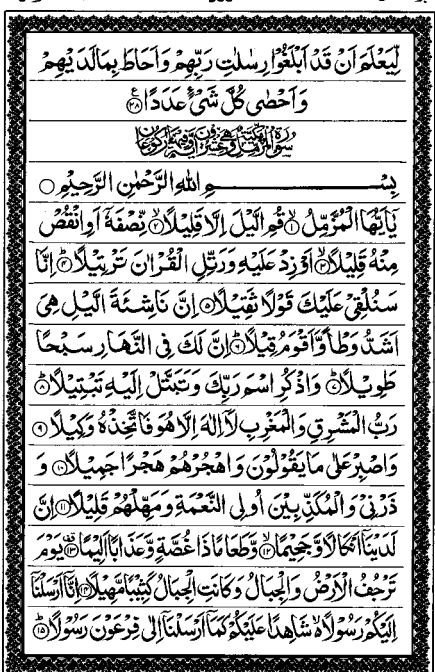 لِّيَعْلَمَ اَنْ قَدْ اَبْلَغُوْا رِسٰلٰتِ رَبِّهِمْ وَاَحَاطَ بِمَا لَدَيْهِمْ
وَاَحْصٰى كُلَّ شَىْءٍ عَدَدًا ۝۲۸
بِسْمِ اللّٰهِ الرَّحْمٰنِ الرَّحِيْمِ ۝
يٰۤاَيُّهَا الْمُزَّمِّلُ ۝۱ قُمِ الَّيْلَ اِلَّا قَلِيْلًا ۝۲ نِّصْفَهٗۤ اَوِ انْقُصْ
مِنْهُ قَلِيْلًا ۝۳ اَوْ زِدْ عَلَيْهِ وَرَتِّلِ الْقُرْاٰنَ تَرْتِيْلًا ۝۴ اِنَّا
سَنُلْقِىْ عَلَيْكَ قَوْلًا ثَقِيْلًا ۝۵ اِنَّ نَاشِئَةَ الَّيْلِ هِىَ
اَشَدُّ وَطْاً وَّاَقْوَمُ قِيْلًا ۝۶ اِنَّ لَكَ فِى النَّهَارِ سَبْحًا
طَوِيْلًا ۝۷ وَاذْكُرِ اسْمَ رَبِّكَ وَتَبَتَّلْ اِلَيْهِ تَبْتِيْلًا ۝۸
رَبُّ الْمَشْرِقِ وَالْمَغْرِبِ لَاۤ اِلٰهَ اِلَّا هُوَ فَاتَّخِذْهُ وَكِيْلًا ۝۹
وَاصْبِرْ عَلٰى مَا يَقُوْلُوْنَ وَاهْجُرْهُمْ هَجْرًا جَمِيْلًا ۝۱۰ وَ
ذَرْنِىْ وَالْمُكَذِّبِيْنَ اُولِى النَّعْمَةِ وَمَهِّلْهُمْ قَلِيْلًا ۝۱۱ اِنَّ
لَدَيْنَاۤ اَنْكَالًا وَّجَحِيْمًا ۝۱۲ وَّطَعَامًا ذَا غُصَّةٍ وَّعَذَابًا اَلِيْمًا ۝۱۳ يَوْمَ
تَرْجُفُ الْاَرْضُ وَالْجِبَالُ وَكَانَتِ الْجِبَالُ كَثِيْبًا مَّهِيْلًا ۝۱۴ اِنَّاۤ اَرْسَلْنَاۤ
اِلَيْكُمْ رَسُوْلًا ۙ شَاهِدًا عَلَيْكُمْ كَمَاۤ اَرْسَلْنَاۤ اِلٰى فِرْعَوْنَ رَسُوْلًا ۝۱۵